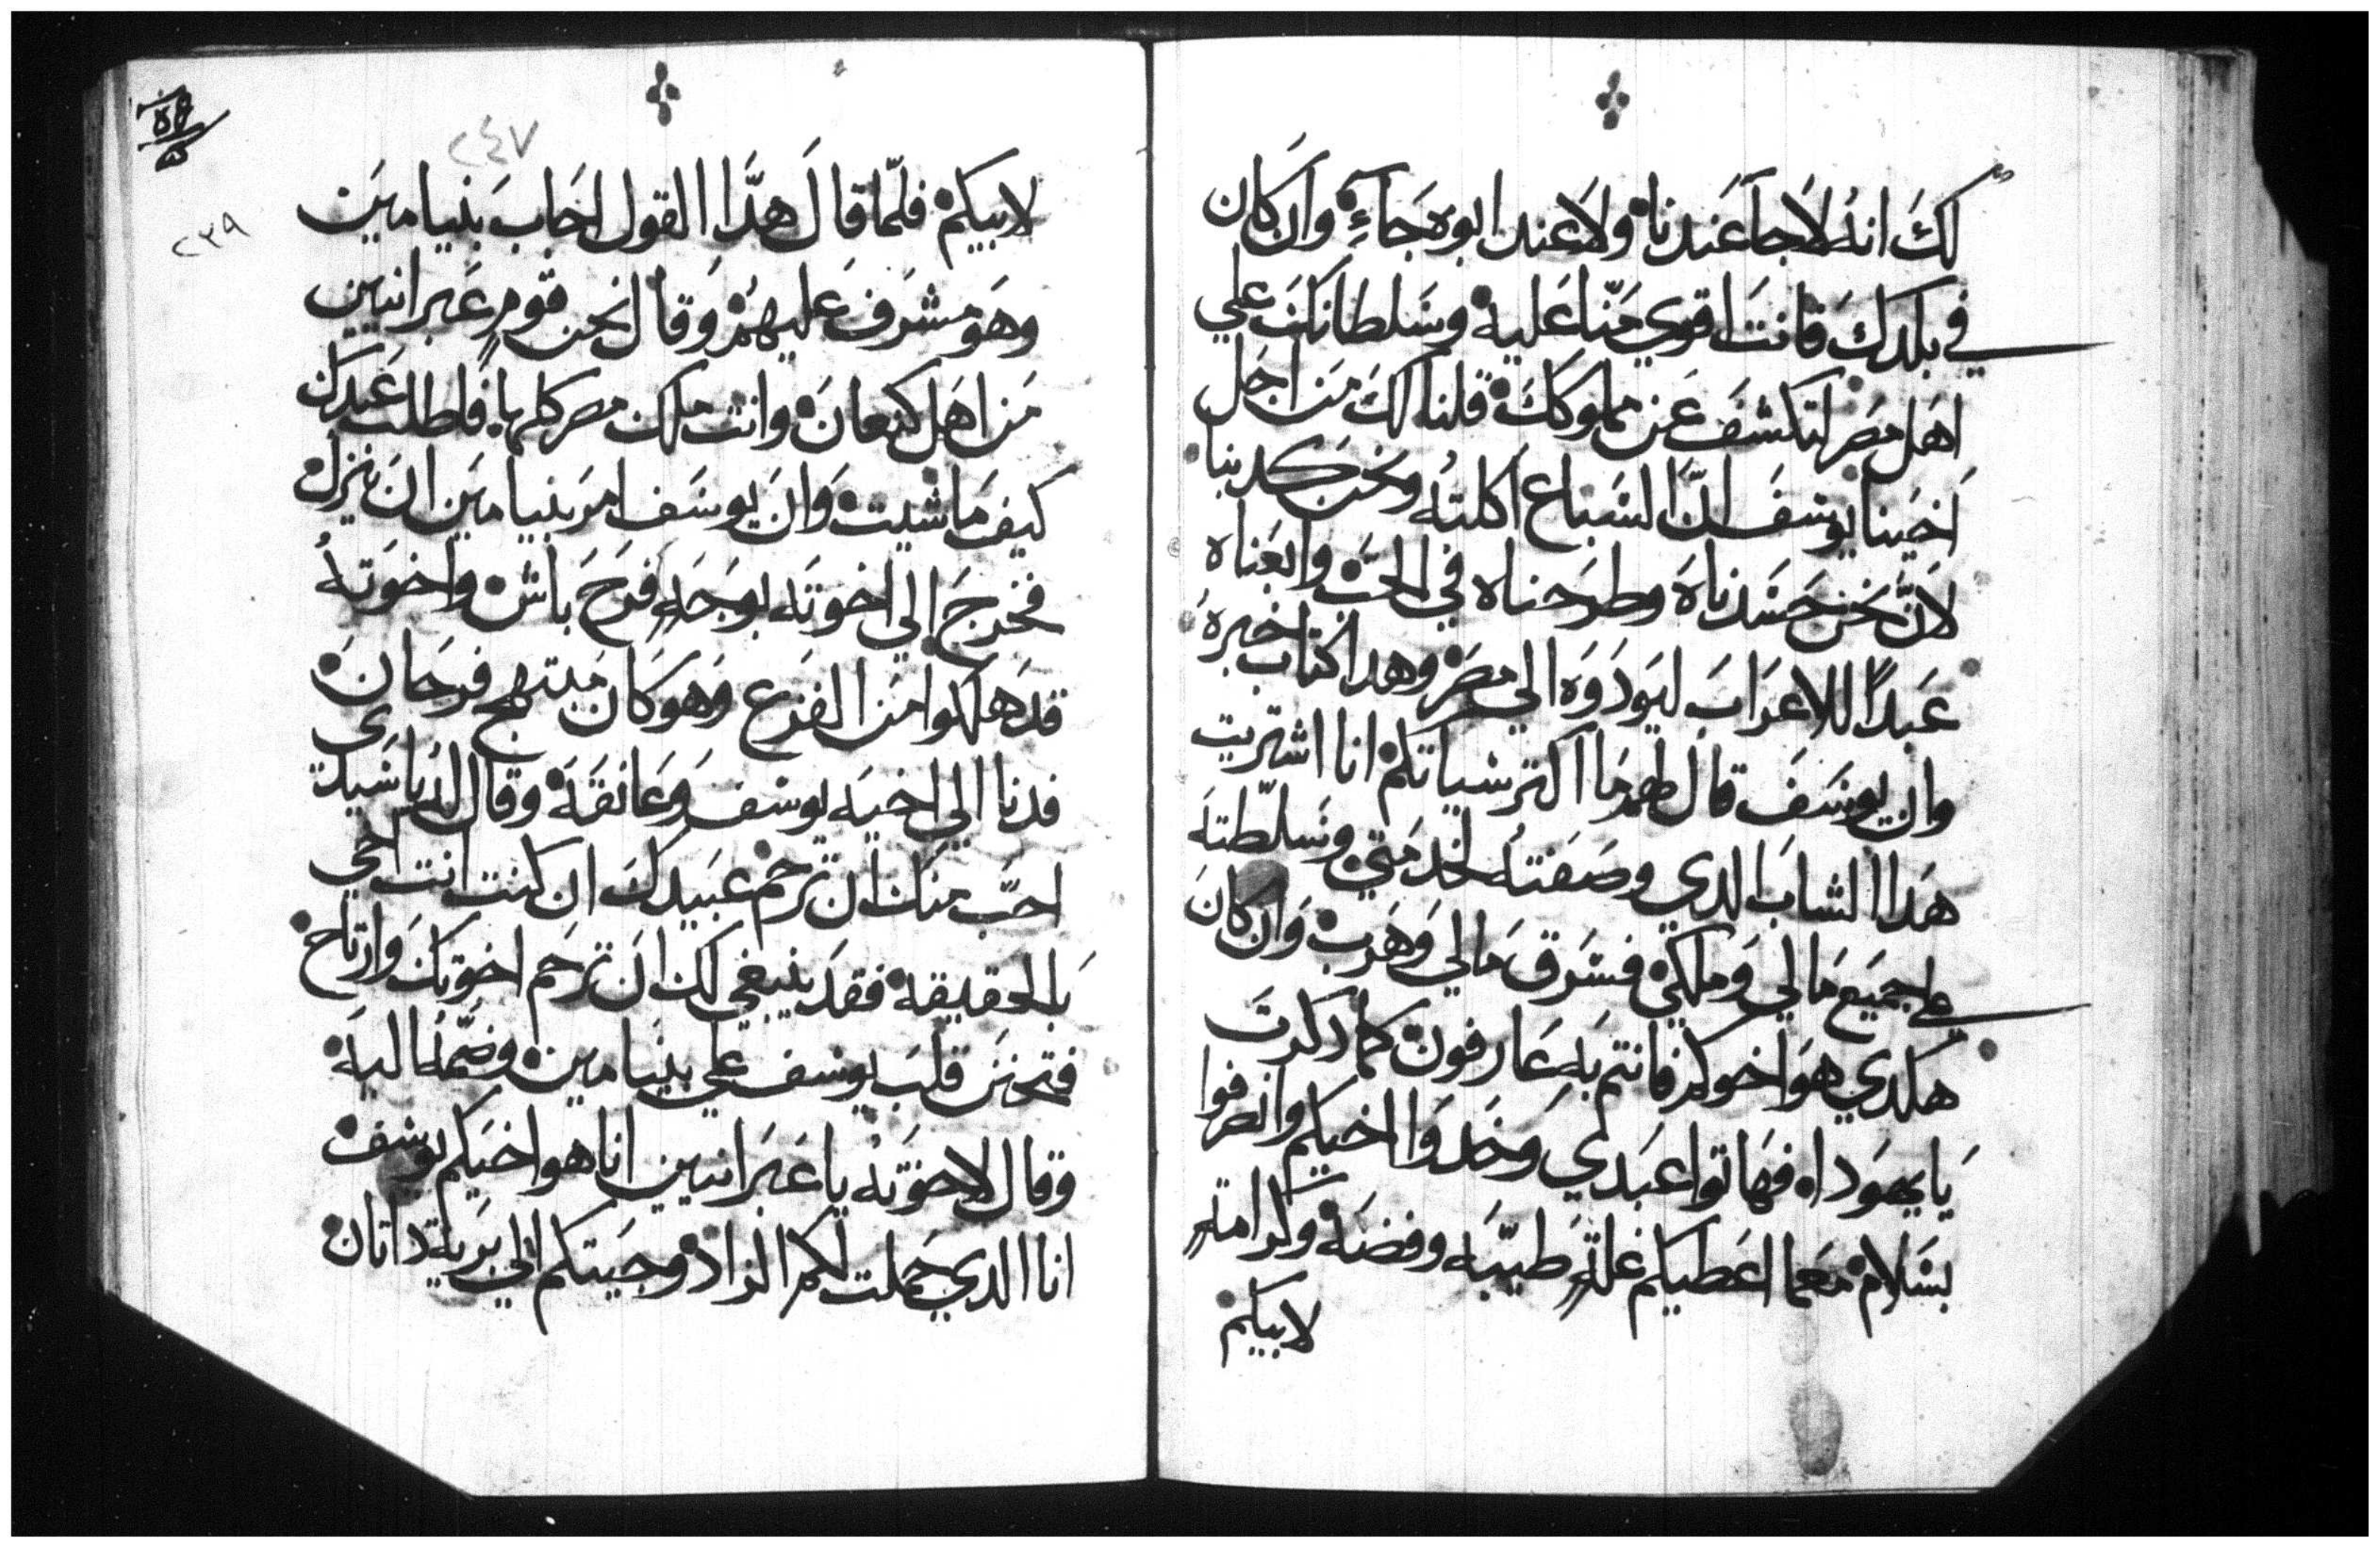 لك انه لا جا عندنا ولا عند ابوه جاء وان كان
في بلدك فانت اقوي منا عليه وسلطانك علي
اهل مصر لتكشف عن مملوكك قلنا لك من اجل
اخينا يوسف ان السباع اكلته ونحن كدبنا
لان نحن حسدناه وطرحناه في الجب وابعناه
عبدا للاعراب ليودوه الي مصر وهدا كتاب خبره
وان يوسف قال لهم ما اكتر شياتكم انا اشتريت
هدا الشاب الدي وصفته لخدمتي وسلطته
علي جميع مالي وملكي فسرق مالي وهرب وان كان
هكدي هو اخوكم فانتم به عارفون كما دكرت
يا يهودا فهاتوا عبدي وخدوا اخيكم وانصرفوا
بسلام معما اعطيكم غلة طيبه وفضه وكرامة
لابيكم
٢٤٧
٢٣٩
لابيكم فلما قال هدا القول اجاب بنيامين
وهو مشرف عليهم وقال نحن قوم عبرانيين
من اهل كنعان وانت ملك مصر كلها فاطلب عبدك
كيف ما شيت وان يوسف امر بنيامين ان ينزل
فخرج الي اخوته بوجه فرح باش واخوته
قد هلكوا من الفزع وهو كان مبتهج فرحان
فدنا الي اخيه يوسف وعانقه وقال له يا سيدي
احب منك ان ترحم عبيدك ان كنت انت اخي
بالحقيقه فقد ينبغي لك ان ترحم اخوتك وارتاح
فتحنن قلب يوسف علي بنيامين وضمه اليه
وقال لاخوته يا عبرانيين انا هو اخيكم يوسف
انا الدي حملت لكم الزاد وجيتكم الي برية داتان